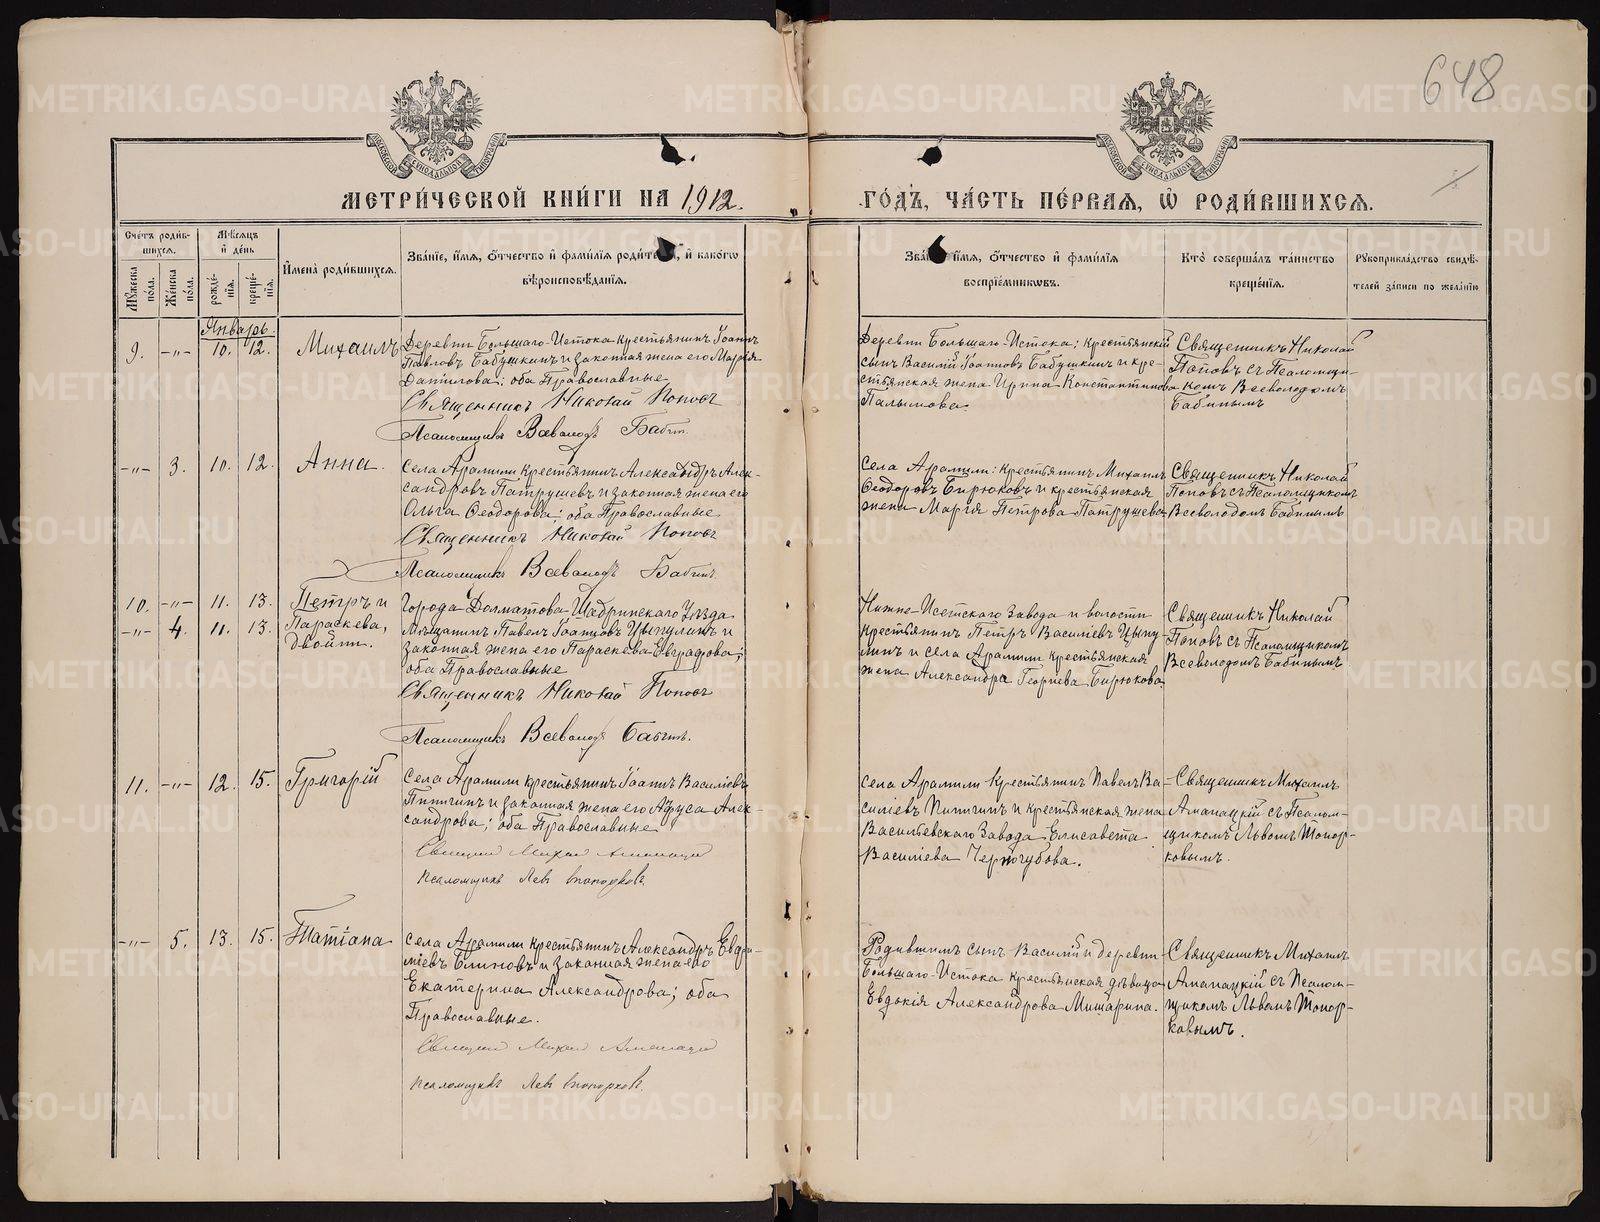 648
МОСКОВСКОЙ СѴНОДАЛЬНОЙ ТИПОГРАФІИ
МОСКОВСКОЙ СѴНОДАЛЬНОЙ ТИПОГРАФІИ
МЕТРИ́ЧЕСКОЙ КНИ́ГИ НА 1912.
ГО́ДЪ, ЧА́СТЬ ПЕ́РВАѦ, Ѡ҆ РОДИ́ВШИХСѦ.
Сче́тъ роди́вшихсѧ.
Мѹ́жеска по́ла.
Же́нска по́ла.
Мѣ́сѧцъ и҆ де́нь
рожде́нїѧ.
креще́нїѧ.
И҆мена̀ роди́вшихсѧ.
Зва́нїе, и҆́мѧ, ѻ҆́тчество и҆ фами́лїѧ роди́телей, и҆ како́гѡ
вѣроисповѣ́данїѧ.
Зва́нїе, и҆́мѧ, ѻ҆́тчество и҆ фами́лїѧ
воспрїе́мникѡвъ.
Кто̀ соверша́лъ та́инство
креще́нїѧ.
Рꙋкоприкла́дство свидѣ́-
телей за́писи по жела́нїю
Январь.
9. -"- 10. 12. Михаилъ
Деревни Большаго-Истока крестьянинъ Іоаннъ
Павловъ Бабушкинъ и законная жена его Марія
Данилова; оба Православные
Священникъ Николай Поповъ
Псаломщикъ Всеволодъ Бабин.
Деревни Большаго-Истока: крестьянскій
сынъ Василій Іоанновъ Бабушкинъ и кре-
стьянская жена Ирина Константинова
Палымова
Священникъ Николай
Поповъ съ Псаломщи-
комъ Всеволодомъ
Бабинымъ
-"- 3. 10. 12. Анна.
Села Арамили крестьянинъ Александръ Алек-
сандровъ Патрушевъ и законная жена его
Ольга Ѳеодорова; оба Православные
Священникъ Николай Поповъ
Псаломщикъ Всеволодъ Бабинъ.
Села Арамили: крестьянинъ Михаилъ
Ѳеодоровъ Бирюковъ и крестьянская
жена Марія Петрова Патрушева
Священникъ Николай
Поповъ съ Псаломщикомъ
Всеволодомъ Бабинымъ
10. -"- 11. 13. Петръ и
-"- 4. 11. 13. Параскева,
двойни.
Города Долматова Шадринскаго Уѣзда
Мѣщанинъ Павелъ Іоанновъ Цыпулинъ и
законная жена его Параскева Евграфова;
оба Православные
Священникъ Николай Поповъ
Псаломщикъ Всеволодъ Бабинъ.
Нижне-Исетскаго Завода и волости
крестьянинъ Петръ Василіевъ Цыпу-
линъ и села Арамили крестьянская
жена Александра Георгіева Бирюкова.
Священникъ Николай
Поповъ съ Псаломщикомъ
Всеволодомъ Бабинымъ
11. -"- 12. 15. Григорій
Села Арамили крестьянинъ Іоаннъ Василіевъ
Пинигинъ и законная жена его Афуса Алек-
сандрова; оба Православные
Михаил
псаломщикъ Левъ Топорковъ
села Арамили крестьянинъ Павелъ Ва-
силіевъ Пинигинъ и крестьянская жена
Васильевскаго Завода Елисавета
Василіева Черногубова.
Священникъ Михаилъ
Аманацкій съ Псалом-
щикомъ Львомъ Топор-
ковымъ.
-"- 5. 13. 15. Татіана
Села Арамили крестьянинъ Александръ Евфи-
міевъ Блиновъ и законная жена его
Екатерина Александрова; оба
Православные.
Михаил
псаломщикъ Левъ Топорковъ
Родившимъ сынъ Василій и деревни
Большаго-Истока крестьянская дѣвица
Евдокія Александрова Мишарина.
Священникъ Михаилъ
Аманацкій съ Псалом-
щикомъ Львомъ Топор-
ковымъ.
METRIKI.GASO-URAL.RU